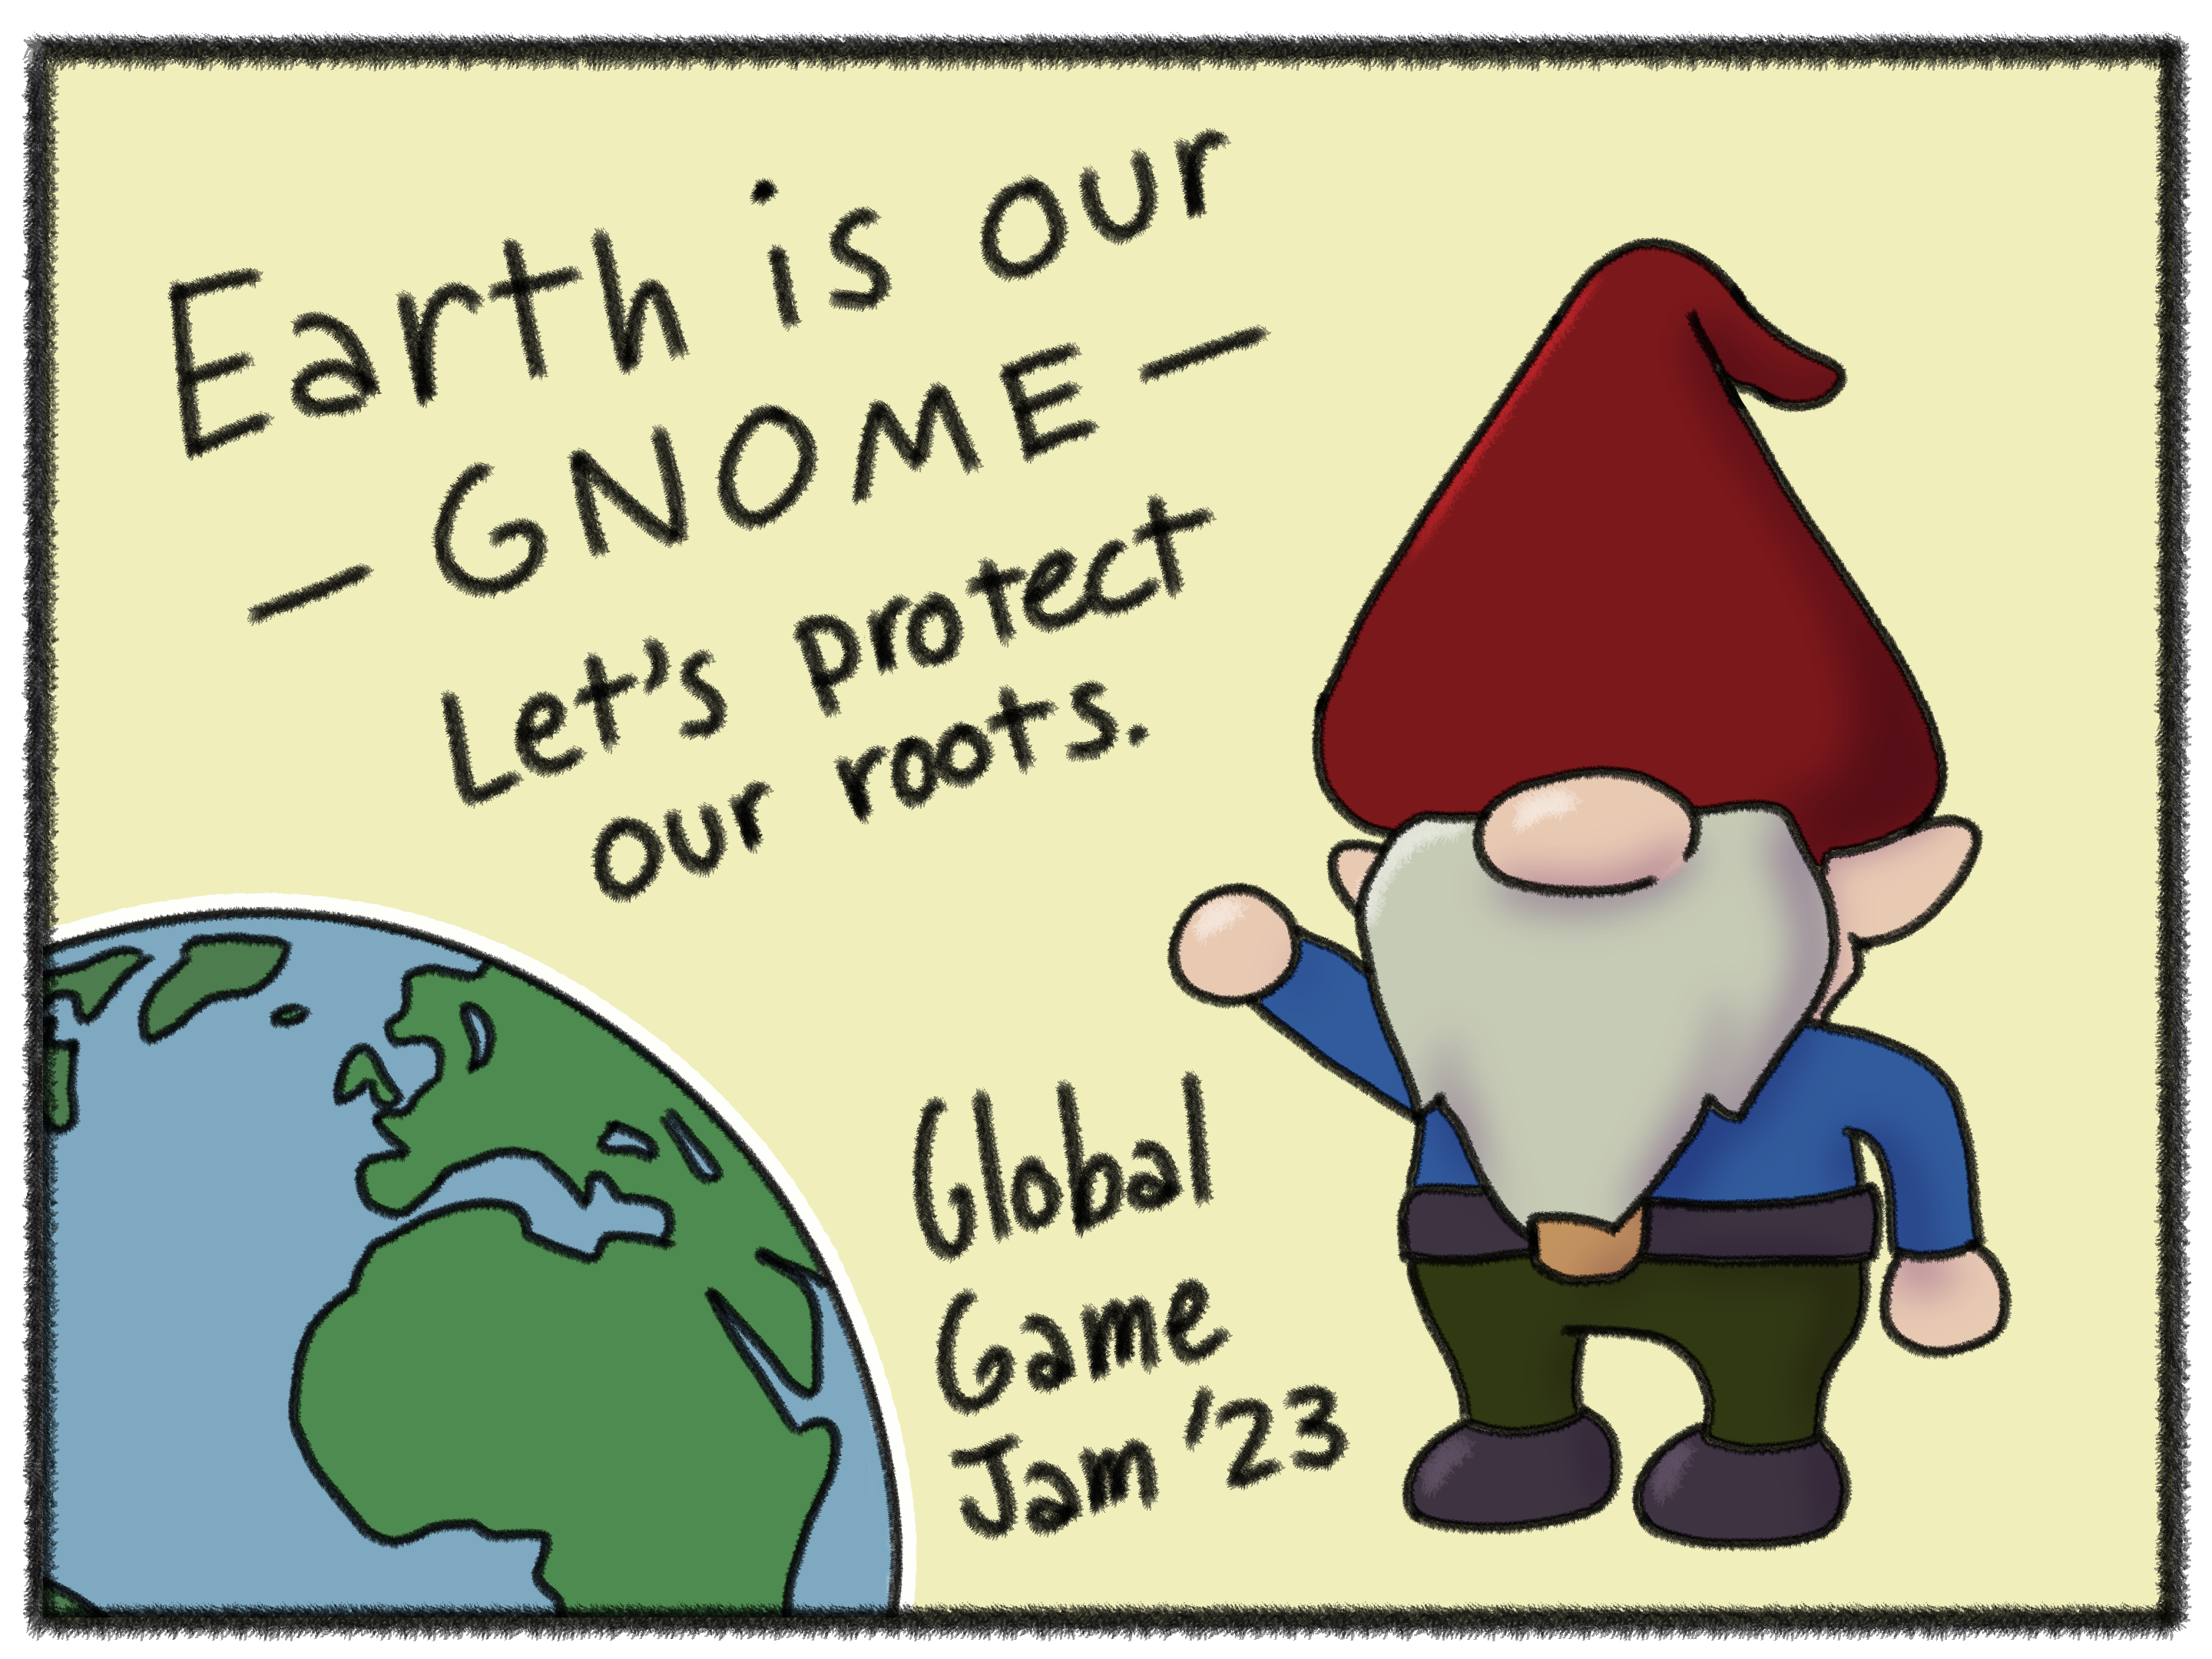 Earth is our
— GNOME —
Let's protect
our roots.
Global
Game
Jam '23